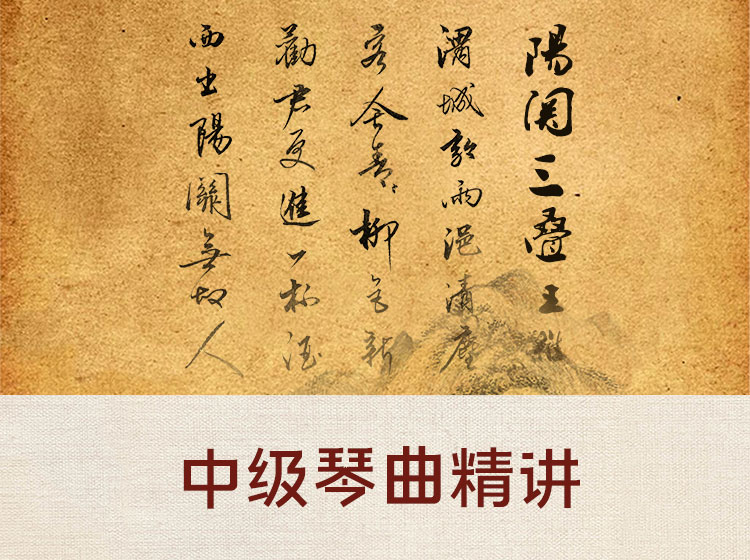 陽関三叠 王維
渭城朝雨浥清塵
客舍青々柳色新
勸君更進一杯酒
西出陽關無故人
中级琴曲精讲